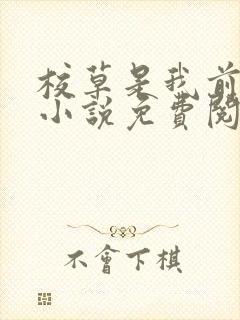 校草是我前
小說免費閱
不會下棋